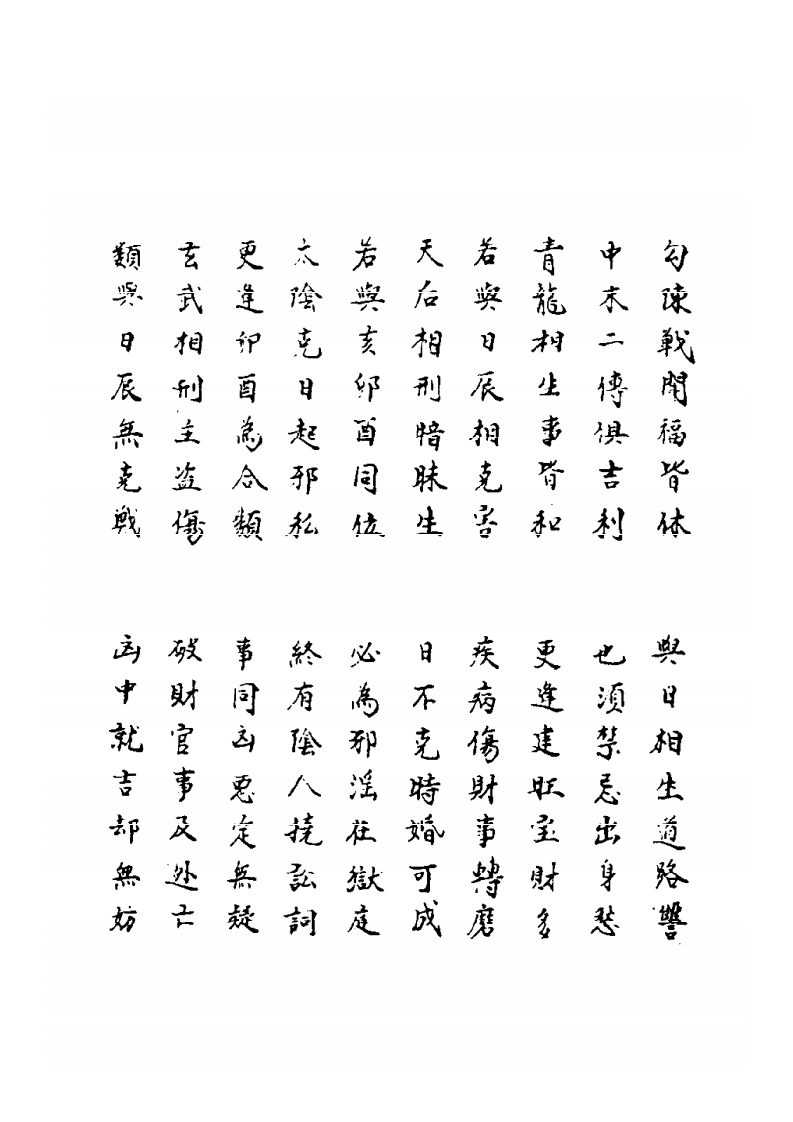 勾陳戰閗福皆休 與日相生道路讐
中末二傳俱吉利 也須禁忌出身愁
青龍相生事皆和 更逢建旺宝財多
若與日辰相克害 疾病傷財事轉磨
天后相刑暗昧生 日不克時婚可成
若與亥卯酉同位 必為邪淫在獄庭
太陰克日起邪私 終有陰人撓訟詞
更逢卯酉為合類 事同凶惡定無疑
玄武相刑主盜傷 破財官事及逃亡
類與日辰無克戰 凶中就吉却無妨